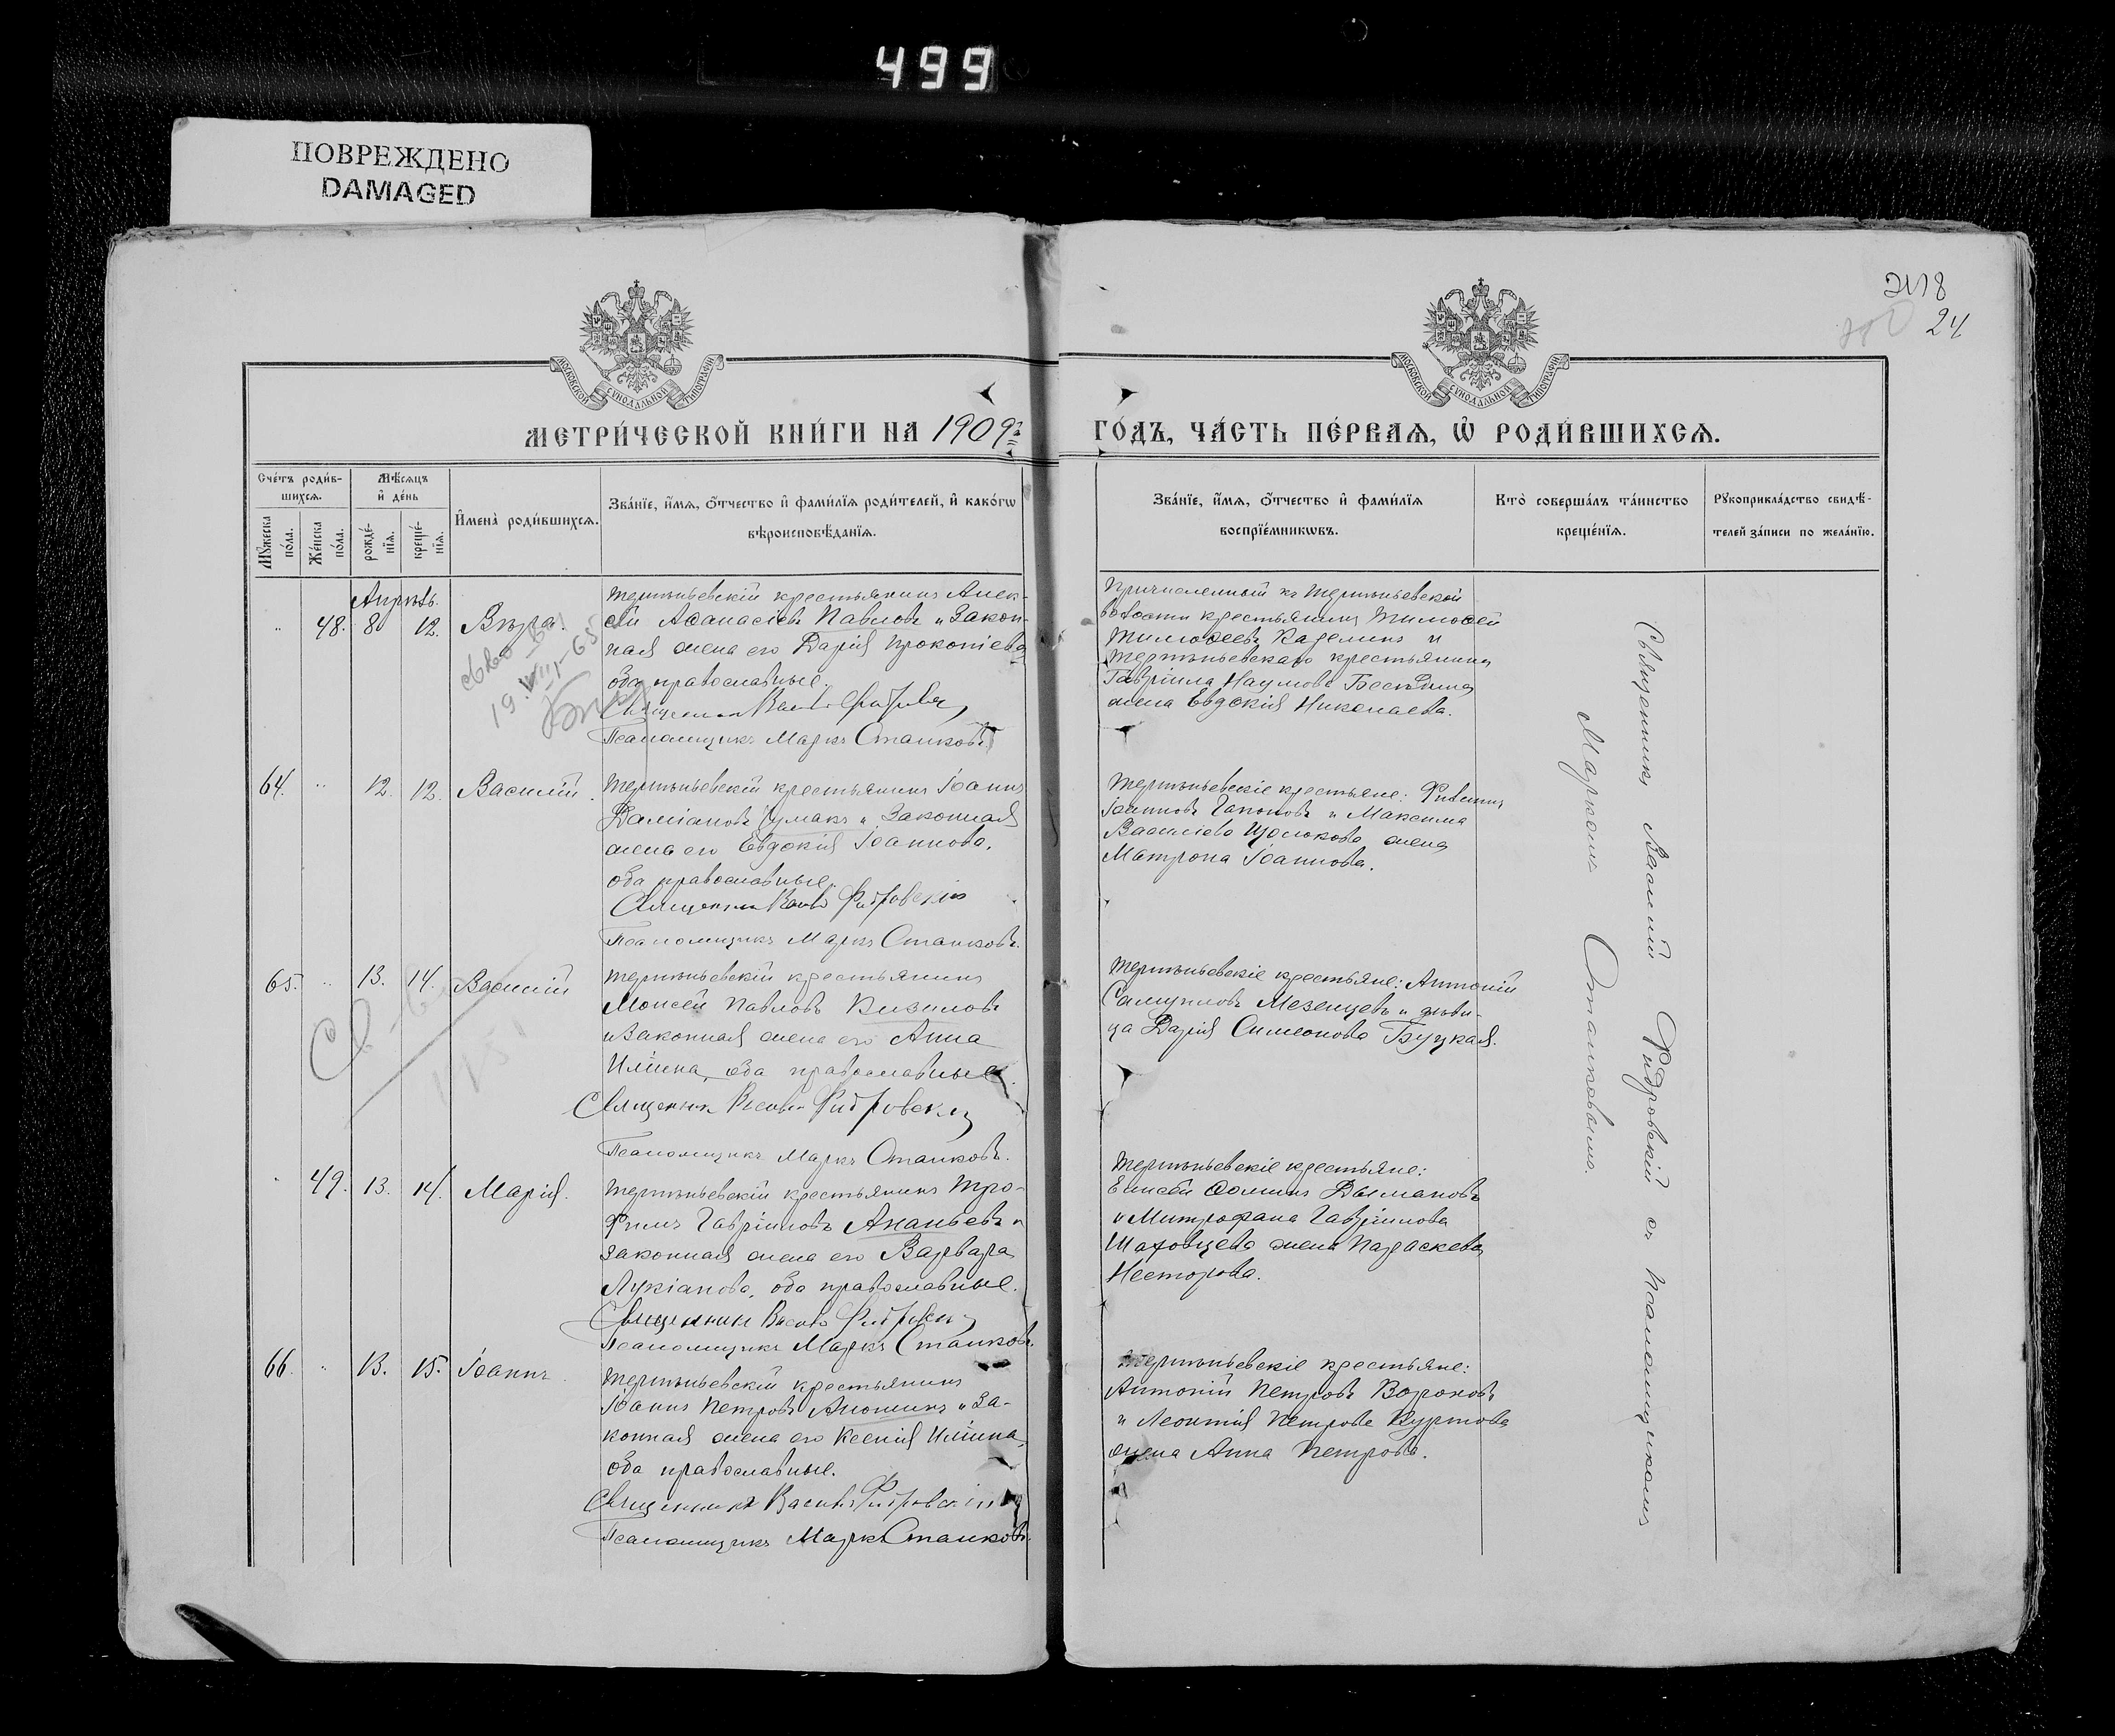 499
ПОВРЕЖДЕНО
DAMAGED
218
24.
МОСКОВСКОЙ СѴНОДАЛЬНОЙ ТИПОГРАФІИ
МОСКОВСКОЙ СѴНОДАЛЬНОЙ ТИПОГРАФІИ
МЕТРИ́ЧЕСКОЙ КНИ́ГИ НА 1909 г.
ГО́ДЪ, ЧА́СТЬ ПЕ́РВАѦ, Ѡ҆ РОДИ́ВШИХСѦ.
Сче́тъ роди́в-
шихсѧ.
Мѣ́сѧцъ
и҆ де́нь
Мꙋ́жеска
по́ла.
Же́нска
по́ла.
рожде́-
нїѧ.
креще́-
нїѧ.
И҆мена̀ роди́вшихсѧ.
Зва́нїе, и҆́мѧ, ѻ҆́тчество и҆ фами́лїѧ роди́телей, и҆ како́гѡ
вѣроисповѣ́данїѧ.
Зва́нїе, и҆́мѧ, ѻ҆́тчество и҆ фами́лїѧ
воспрїе́мникѡвъ.
Кто̀ соверша́лъ та́инство
креще́нїѧ.
Рꙋкоприкла́дство свидѣ́-
телей за́писи по жела́нїю.
Апрѣль.
48. 8. 12. Вѣра.
Терпѣньевскій крестьянинъ Алек-
сѣй Аѳанасіевъ Павловъ и закон-
ная жена его Дарія Прокопіева
оба православные.
Псаломщикъ Маркъ Станковъ
Причисленный къ Терпѣньевской
волости крестьянинъ Тимоѳей
Тимоѳеевъ Каделинъ и
Терпѣньевскаго крестьянина
Гавріила Наумова
жена Евдокія Николаева.
64. 12. 12. Василій.
Терпѣньевскій крестьянинъ Іоаннъ
Даміановъ Чумакъ и законная
жена его Евдокія Іоаннова.
оба православные.
Священникъ Василій Фидровскій
Псаломщикъ Маркъ Станковъ.
Терпѣньевскіе крестьяне: Филиппъ
Іоанновъ Гапоновъ и Максима
Василіева Щолокова жена
Матрона Іоаннова.
65. 13. 14. Василій
Терпѣньевскій крестьянинъ
Моисей Павловъ Визиловъ
и законная жена его Анна
Иліина, оба православные.
Священникъ Василій Фидровскій
Псаломщикъ Маркъ Станковъ.
Терпѣньевскіе крестьяне: Антоній
Самуиловъ Мезенцевъ и дѣви-
ца Дарія Симеонова Буцкая.
49. 13. 14. Марія.
Терпѣньевскій крестьянинъ Тро-
фимъ Гавріиловъ Ананьевъ и
законная жена его Варвара
Лукіанова, оба православные.
Священникъ Василій Фидровскій
Псаломщикъ Маркъ Станковъ.
Терпѣньевскіе крестьяне:
Елисей Ѳоминъ Дымановъ
и Митрофана Гавріилова
Шаховцева жена Параскева
Несторова.
66. 13. 15. Іоаннъ.
Терпѣньевскій крестьянинъ
Іоаннъ Петровъ Аношинъ и за-
конная жена его Ксенія Иліина,
оба православные.
Священникъ Василій Фидровскій
Псаломщикъ Маркъ Станковъ.
Терпѣньевскіе крестьяне:
Антоній Петровъ Вороновъ
и Леонтія Петрова Куртова
жена Анна Петрова.
Священникъ Василій Фидровскій съ псаломщикомъ
Маркомъ Станковымъ.